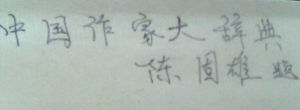 中国作家大辞典
陈国雄题